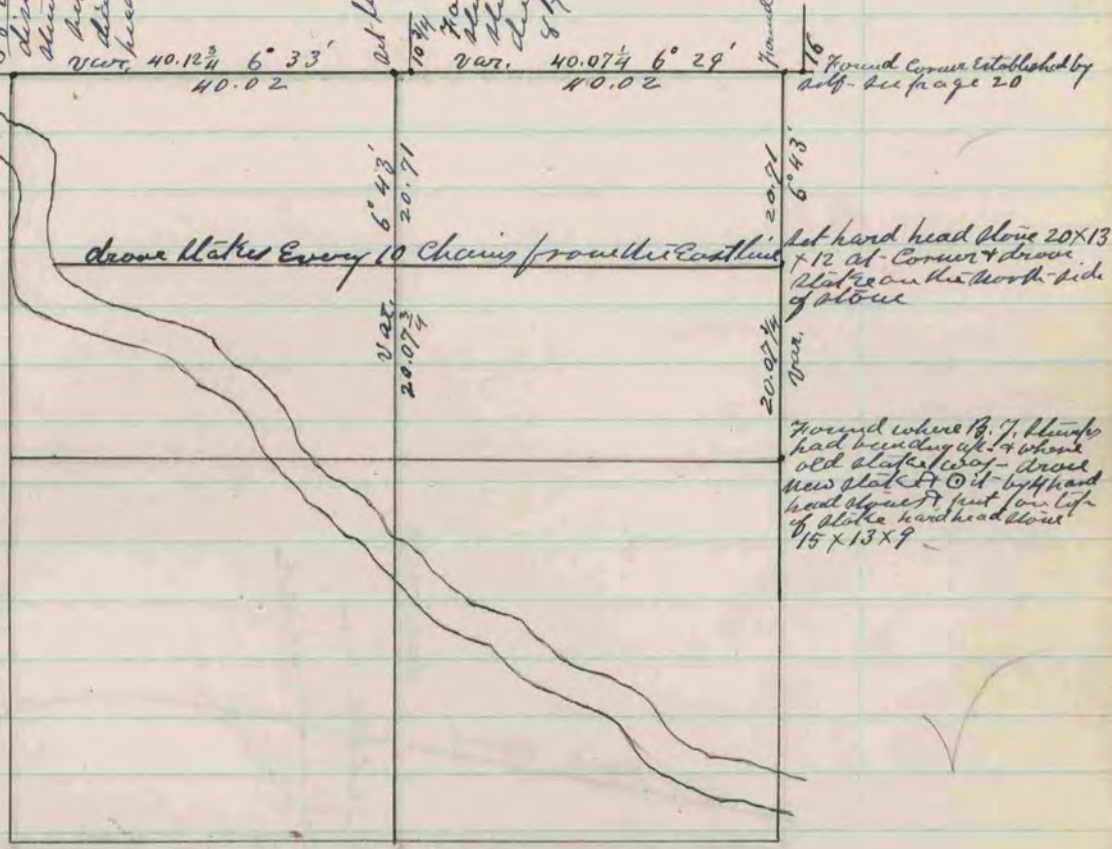 var. 40.12 3/4 6° 33'
40.02
10 3/4
var. 40.07 1/4 6° 29'
40.02
16
Found Corner Established by
self - see page 20
6° 43'
20.71
20.71
6° 43'
drove stakes Every 10 Chains from the East line
set hard head stone 20X13
X12 at Corner & drove
stake on the north side
of stone
var.
20.07 3/4
20.07 1/4
var.
Found where B. F.
had & where
old stake was - drove
new stake & ⊙ it by 4 hard
head stones & put on top
of stake hard head stone
15 X 13 X 9